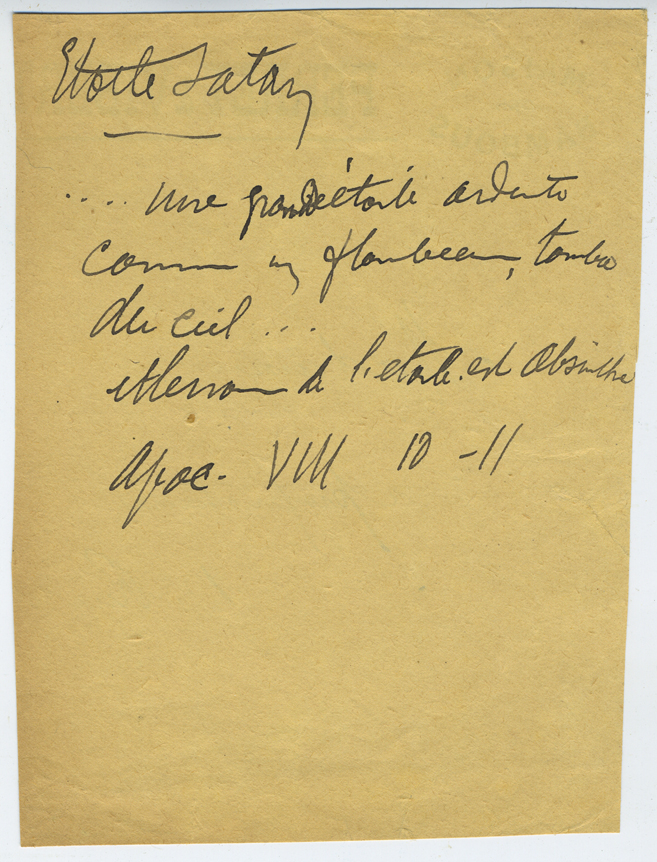 Etoile Satan
.... une grande étoile ardente
comme un flambeau, tomba
du ciel ...
et le nom de l'étoile est Absinthe
Apoc. VIII 10-11